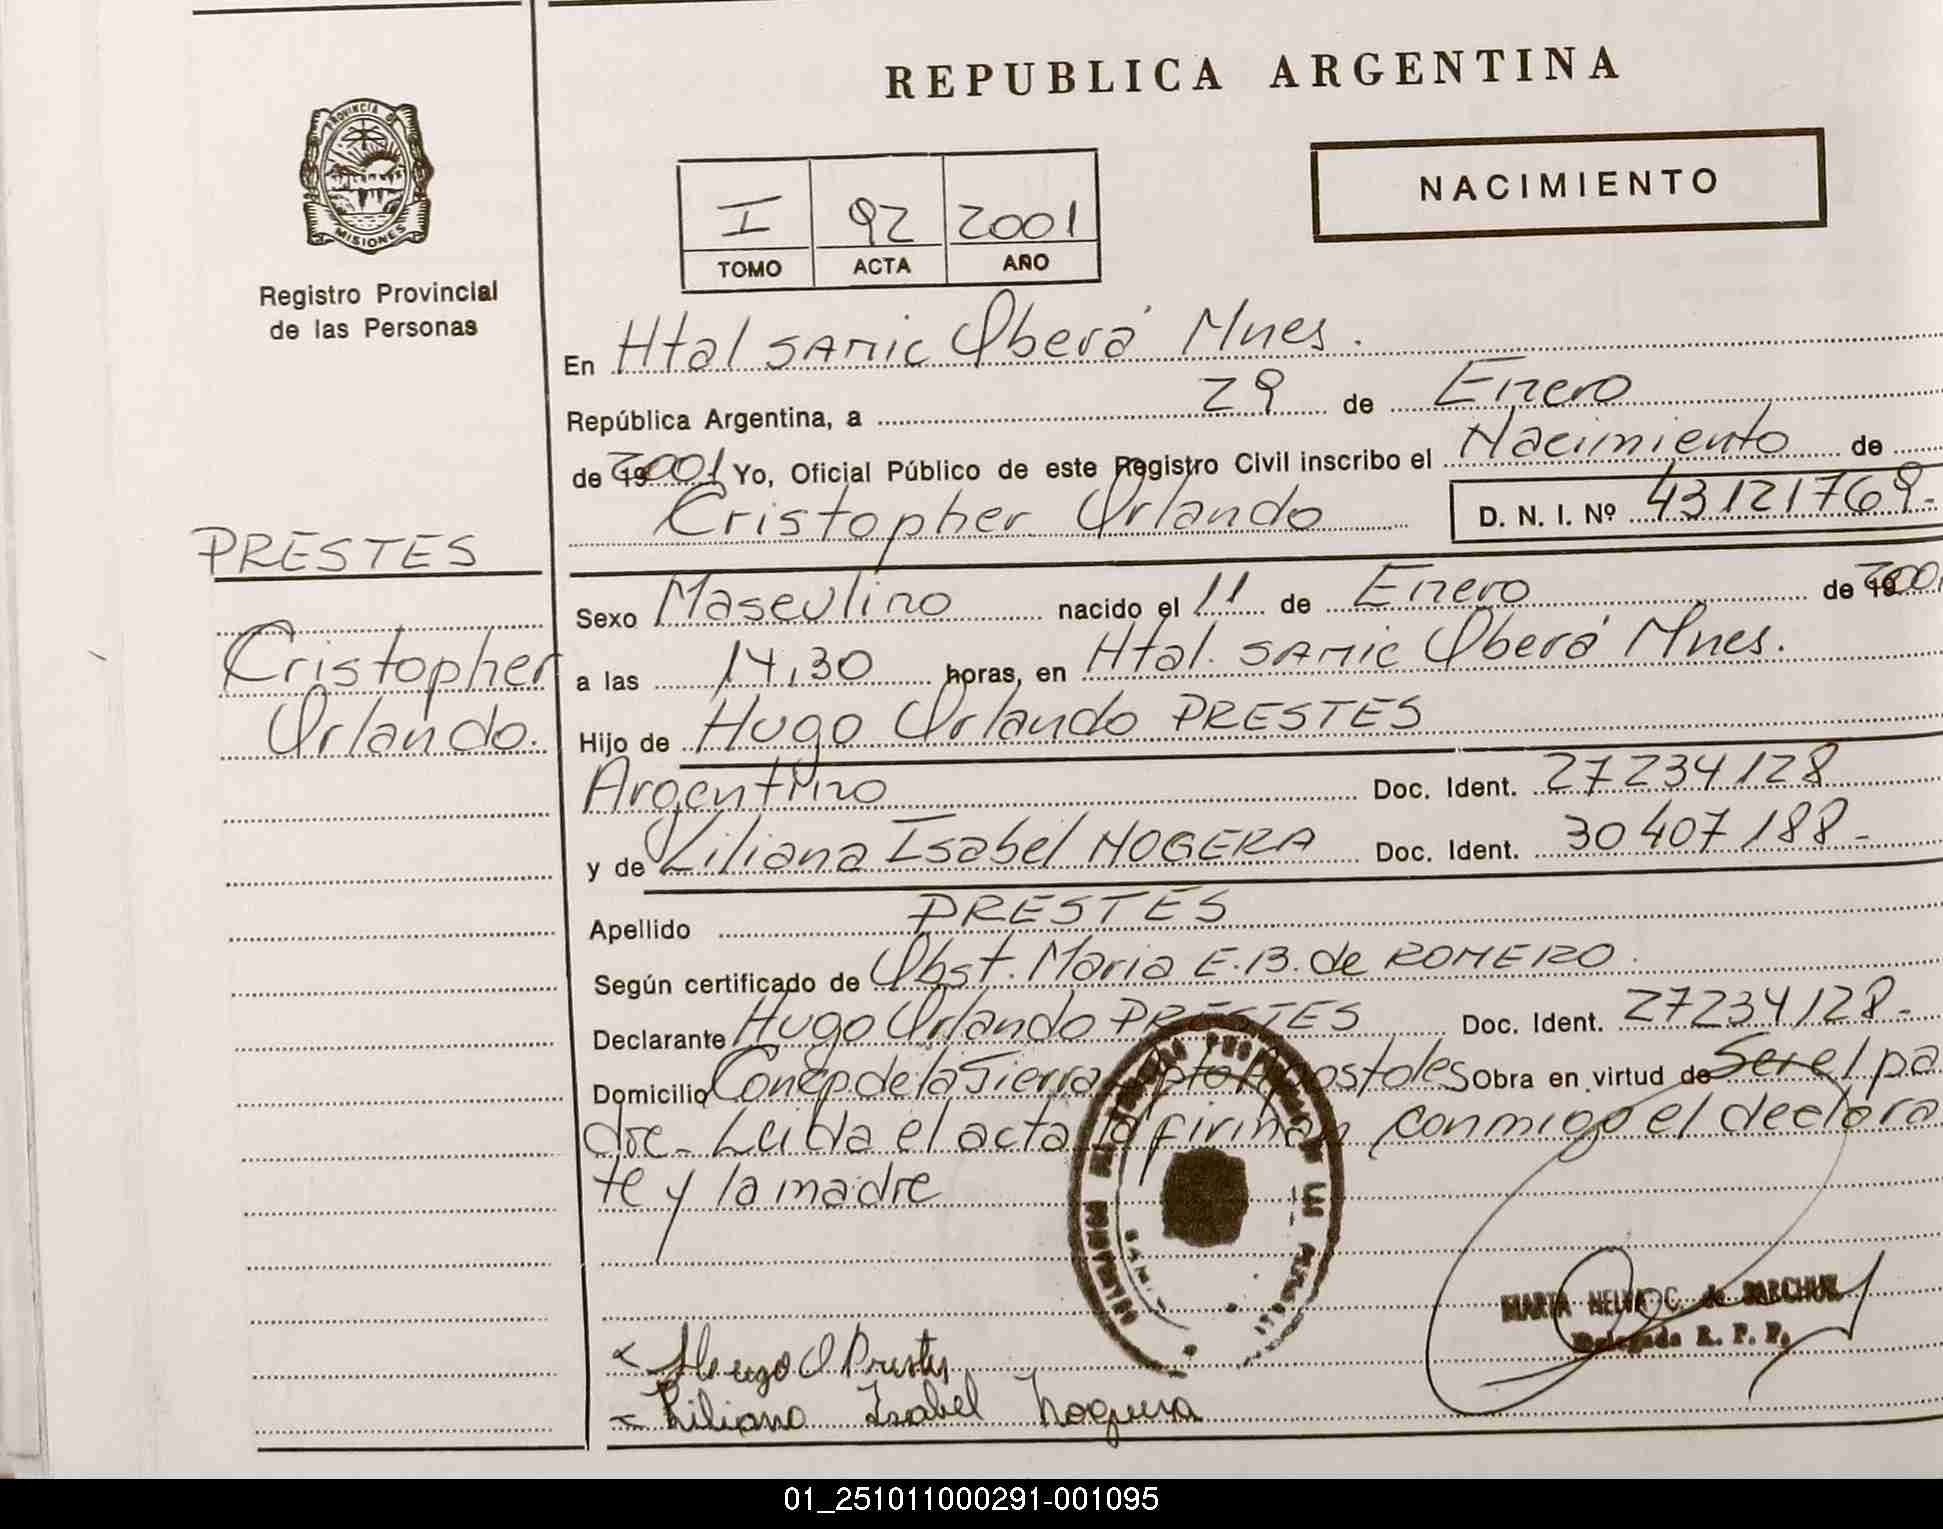 REPUBLICA ARGENTINA
PROVINCIA DE
MISIONES
Registro Provincial
de las Personas
I 92 2001
TOMO ACTA AÑO
NACIMIENTO
En Htal SAMIC Oberá Mnes.
República Argentina, a 29 de Enero
de 19 2001 Yo, Oficial Público de este Registro Civil inscribo el Nacimiento de
Cristopher Orlando D. N. I. Nº 43121769.-
PRESTES
Cristopher
Orlando.
Sexo Masculino nacido el 11 de Enero de 19 2001
a las 14,30 horas, en Htal. SAMIC Oberá Mnes.
Hijo de Hugo Orlando PRESTES
Argentino Doc. Ident. 27234128
y de Liliana Isabel NOGERA Doc. Ident. 30407188-
Apellido PRESTES
Según certificado de Obst. Maria E. B. de ROMERO.
Declarante Hugo Orlando PRESTES Doc. Ident. 27234128-
Domicilio Concep. de la Sierra Dpto Apostoles Obra en virtud de Ser el pa
dre- Leida el acta la firman conmigo el declara
te y la madre
MARTA NELVA C. de
Delegada R. P. P.
Hugo O Prestes
Liliana Isabel Noguera
01_251011000291-001095